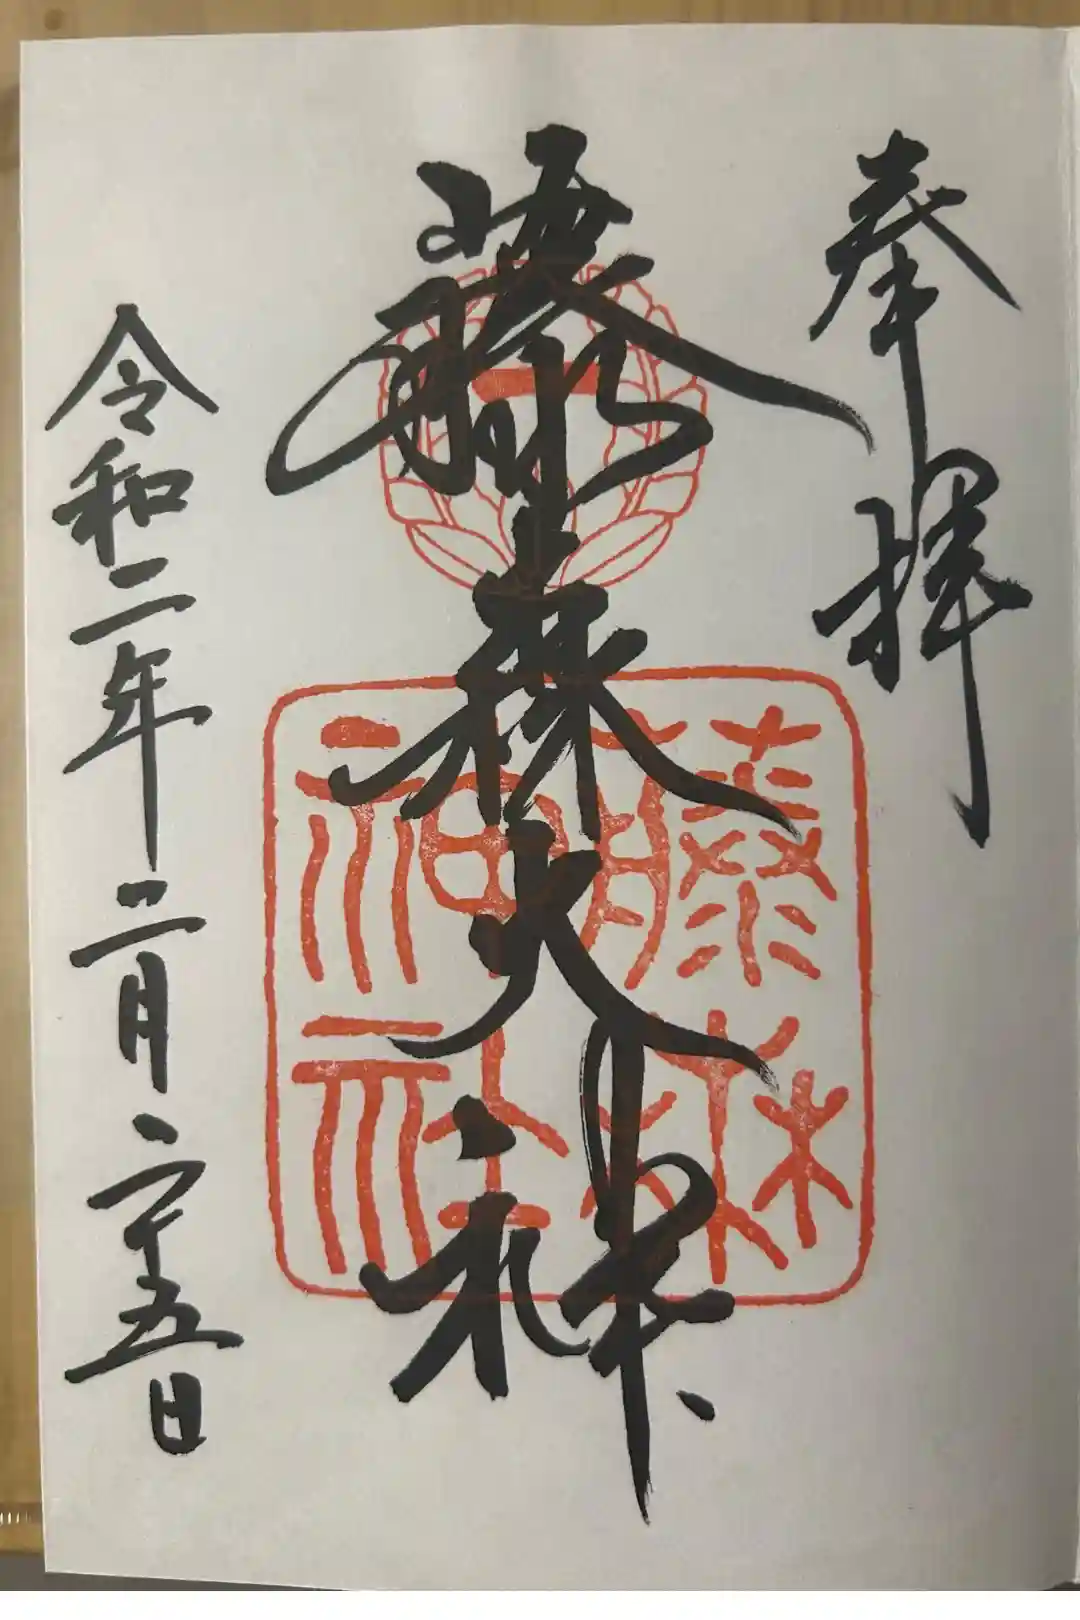 奉拝
藤森大神
令和二年二月二十五日
藤森
神社